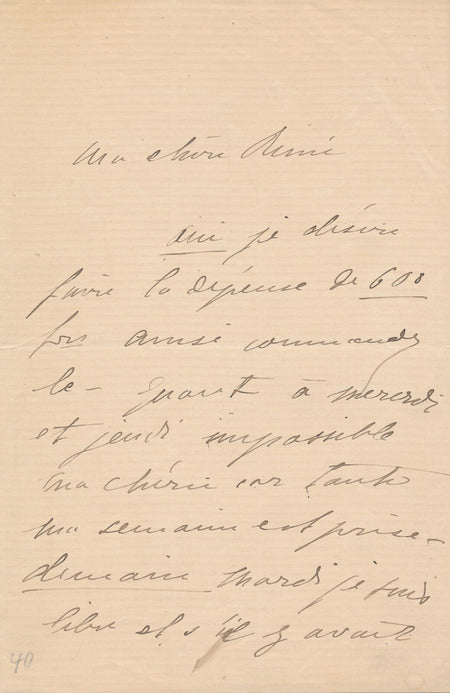 Ma chère
oui je désire
faire la dépense de 600
frs ainsi commandez
le - quant à mercredi
et jeudi impossible
ma chérie car toute
ma semaine est prise -
demain mardi je suis
libre et s'il y avait
40